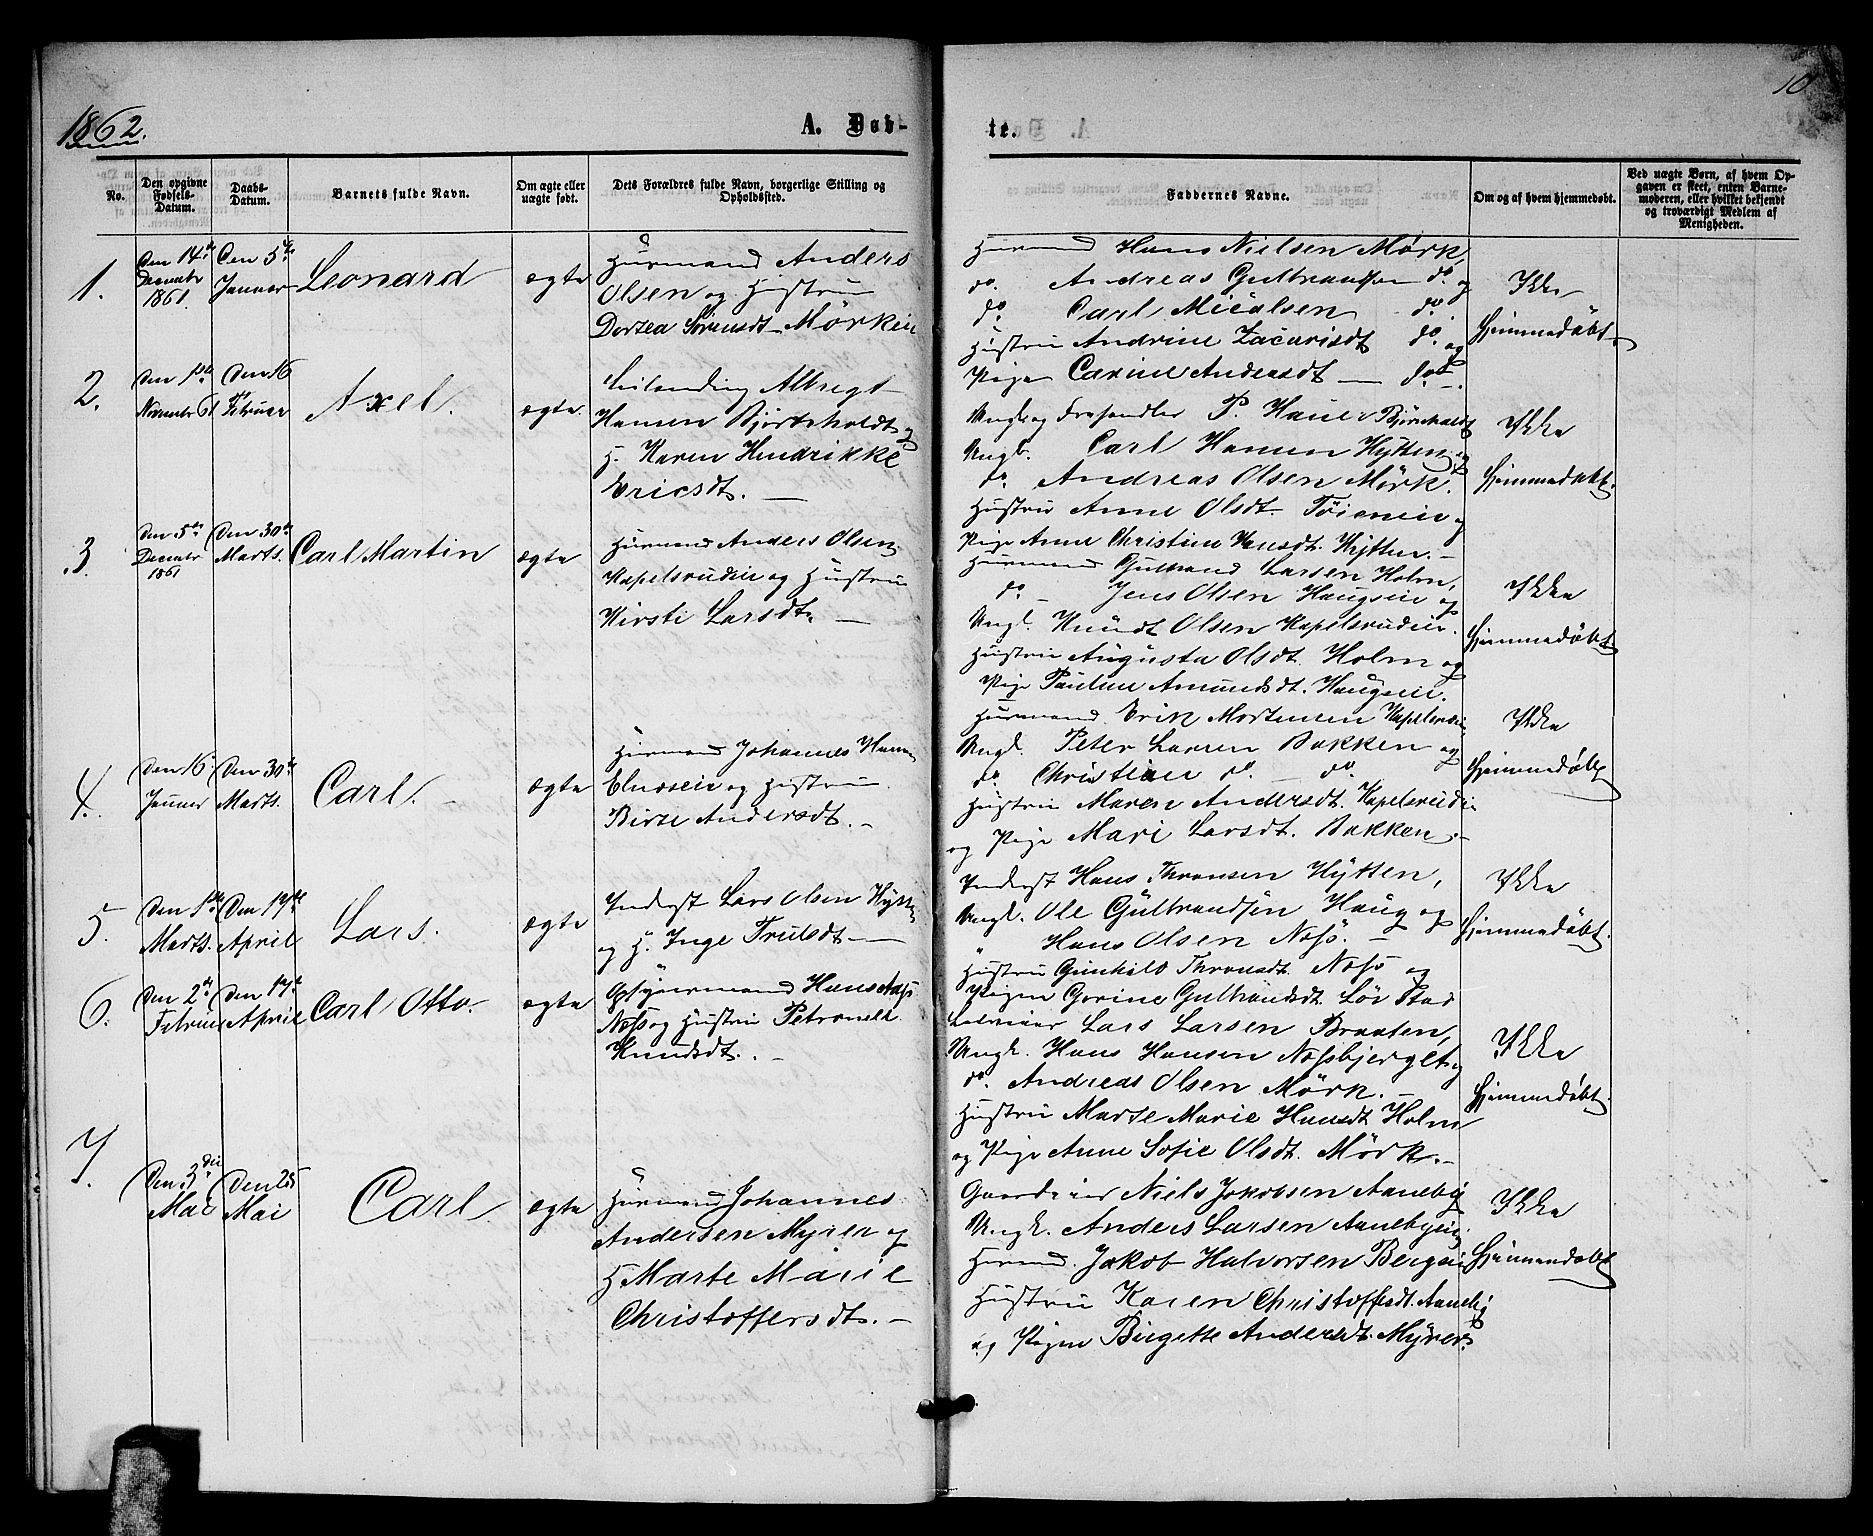 1862.
A. Døb-
te.
10
No.
Den opgivne Fødsels-Datum.
Daabs-Datum.
Barnets fulde Navn.
Om ægte eller uægte født.
Dets Forældres fulde Navn, borgerlige Stilling og Opholdssted.
Faddernes Navne.
Om og af hvem hjemmedøbt.
Ved uægte Børn, af hvem Op-
gaven er skeet, enten Barne-
moderen, eller hvilket bekjendt
og troværdigt Medlem af
Menigheden.
1.
Den 14de
Decembr
1861.
Den 5te
Januar
Leonard
ægte
Huusmand Anders
Olsen og Hustru
Dortea Sörensdt. Mörkeie
Huusmand Hans Nielsen Mörk,
do. Andreas Gulbrandsen do. og
do. Carl Micalsen do.
Hustru Andrine Zacarisdt do. og
Pige Carine Andersdt — do.
Ikke
hjemmedöbt.
2.
Den 1ste
November 61
Den 16
Februar
Axel.
ægte.
Leilænding Albregt
Hansen Björtsholdt og
H. Karen Hendrikke
Ericsdt. —
Ungk. og P. Björnholdt
Ungk. Carl Hansen Hytten og
do. Andreas Olsen Mörk.
Hustru Anne Olsdt. Töieneie og
Pige Anne Christine Knusdt. Hytten. —
Ikke
hjemmedöbt.
3.
Den 5te
Decembr
1861
Den 30te
Marts.
Carl Martin
ægte
Huusmand Anders Olsen
Kapelsrudeie og Hustru
Kirsti Larsdt. —
Huusmand Gulbrand Larsen Holm,
do. Jens Olsen Haugeie og
Ungk. Knudt Olsen Kapelsrudeie.
Hustru Augusta Olsdt. Holm og
Pige Pauline Amundsdt. Haugeie.
Ikke
hjemmedöbt
4.
Den 16
Januar
Den 30te
Marts.
Carl.
ægte
Huusmand Johannes
og Hustru
Birte Andersdt. —
Huusmand Erik Mortensen
Ungk. Peter Larsen Bakken og
do. Christian do. — do.
Hustru Maren Andersdt. Kapelsrudeie
og Pige Mari Larsdt. Bakken. —
Ikke
hjemmedöbt
5.
Den 1ste
Marts.
Den 17de
April
Lars.
ægte
Inderst Lars Olsen Hytten
og H. Inge Trulsdt —
Inderst Hans Thronsen Hytten,
Ungk. Ole Gulbrandsen Haug og
" Hans Olsen Nosö. —
Hustru Gunhild Thronsdt. Nosö og
Pigen Gorine Gulbrandsdt. Löv Stad
Ikke
hjemmedöbt.
6.
Den 2de
Februar
Den 17de
April
Carl Otto.
ægte
Hans
og Hustru Petronell
Knudsdt. —
Lars Larsen Braaten,
Ungk. Hans Hansen Nossbjerget og
do. Andreas Olsen Mörk. —
Hustru Marte Marie Hansdt Holm
og Pige Anne Sofie Olsdt. Mörk. —
Ikke
hjemmedöbt.
7.
Den 3die
Mai
Den 25
Mai
Carl.
ægte
Huusmand Johannes
Andersen Myren og
H. Marte Marie
Christoffersdt. —
Gaardeier Niels Jakobsen Aaneby
Ungk. Anders Larsen Aanebyeie
Huusmand Jakob Halvorsen Bergeie
Hustru Karen Christoffersdt. Aaneby
og Pigen Birgette Andersdt. Myren.
Ikke
hjemmedöbt